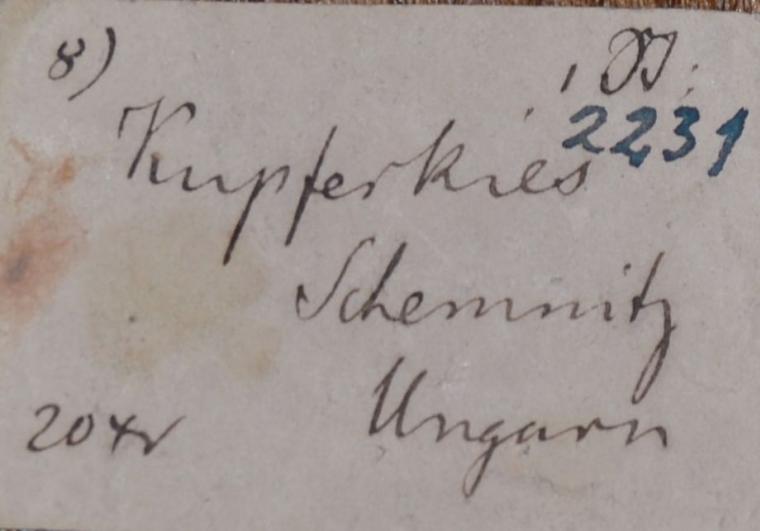 8)
2231
Kupferkies
Schemnitz
Ungarn
20 xr